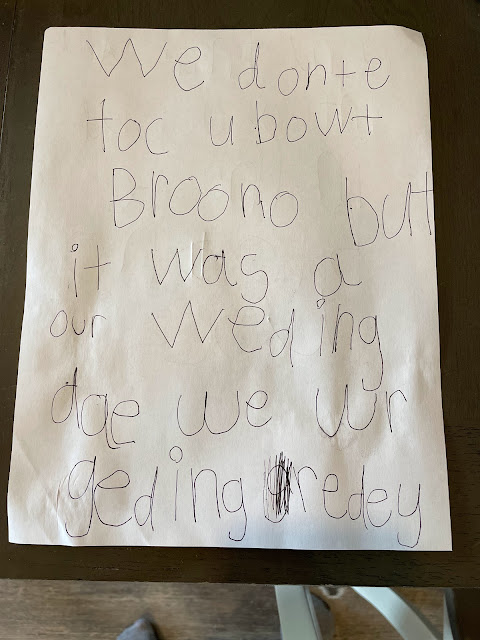 We donte
toc ubowt
Broono but
it was a
our Weding
dae we wr
geding redey